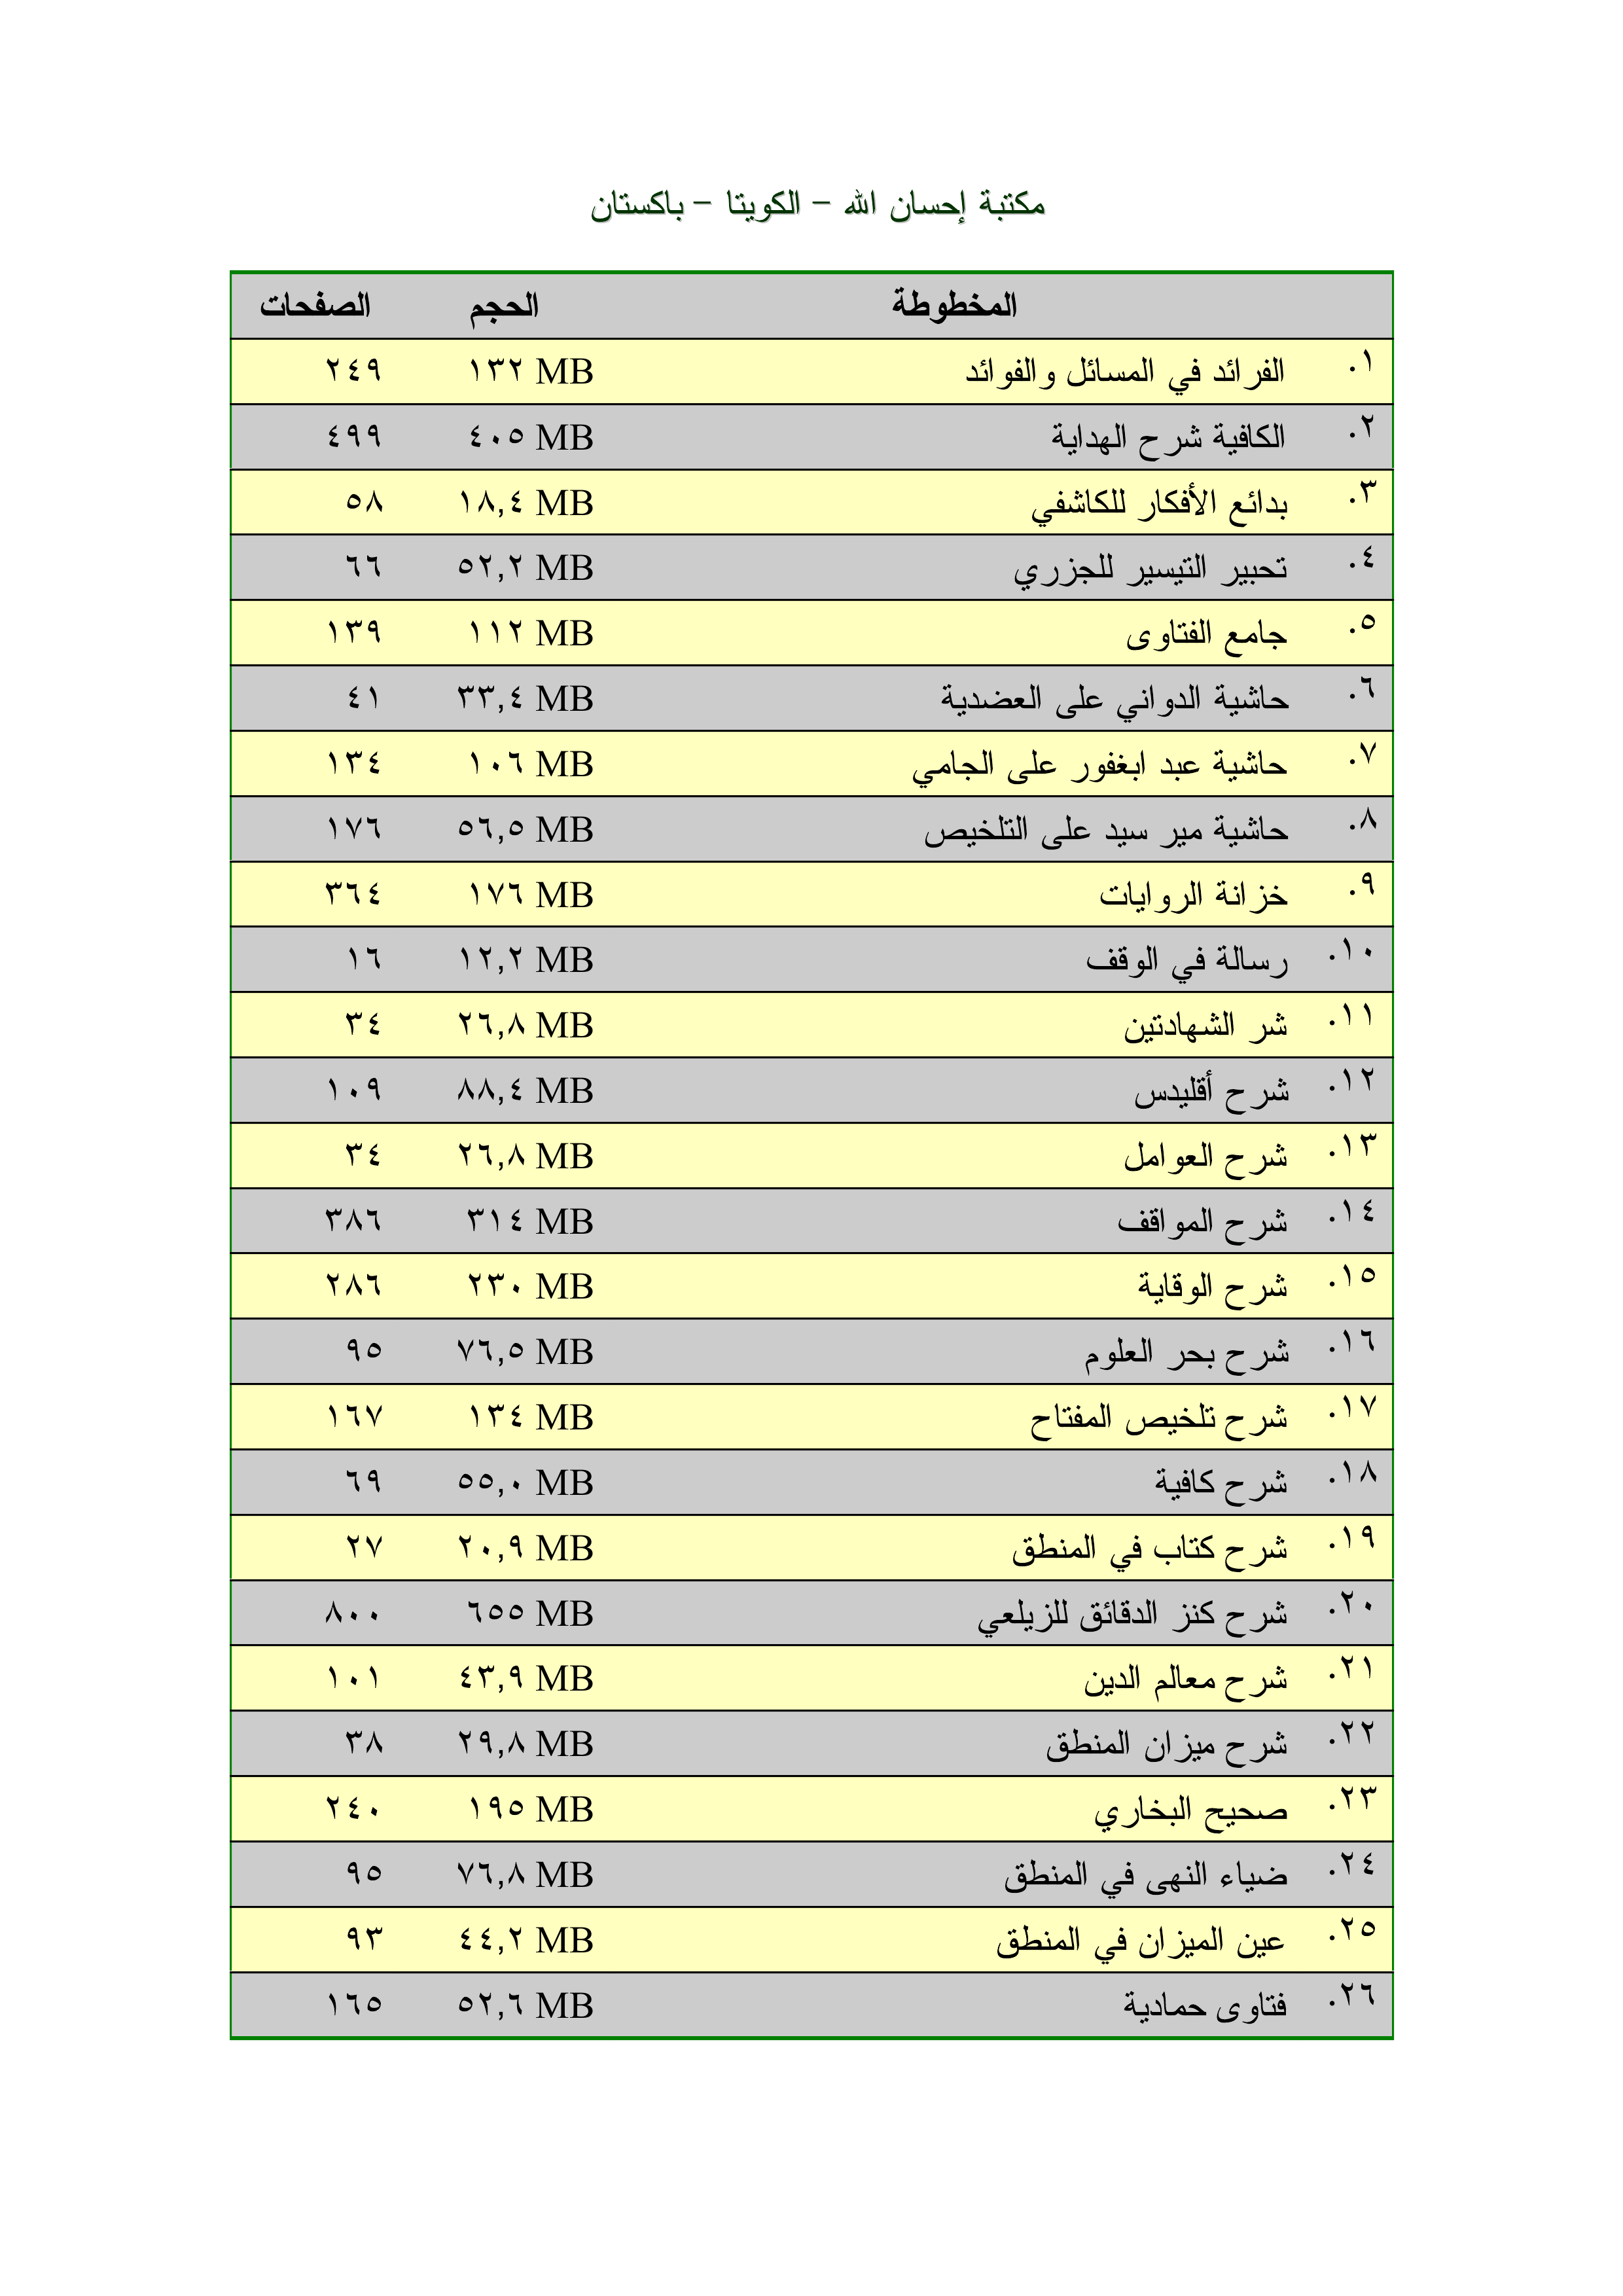 مكتبة إحسان الله – الكويتا – باكستان
المخطوطة الحجم الصفحات
١. الفرائد في المسائل والفوائد ١٣٢ MB ٢٤٩
٢. الكافية شرح الهداية ٤٠٥ MB ٤٩٩
٣. بدائع الأفكار للكاشفي ١٨,٤ MB ٥٨
٤. تحبير التيسير للجزري ٥٢,٢ MB ٦٦
٥. جامع الفتاوى ١١٢ MB ١٣٩
٦. حاشية الدواني على العضدية ٣٣,٤ MB ٤١
٧. حاشية عبد ابغفور على الجامي ١٠٦ MB ١٣٤
٨. حاشية مير سيد على التلخيص ٥٦,٥ MB ١٧٦
٩. خزانة الروايات ١٧٦ MB ٣٦٤
١٠. رسالة في الوقف ١٢,٢ MB ١٦
١١. شر الشهادتين ٢٦,٨ MB ٣٤
١٢. شرح أقليدس ٨٨,٤ MB ١٠٩
١٣. شرح العوامل ٢٦,٨ MB ٣٤
١٤. شرح المواقف ٣١٤ MB ٣٨٦
١٥. شرح الوقاية ٢٣٠ MB ٢٨٦
١٦. شرح بحر العلوم ٧٦,٥ MB ٩٥
١٧. شرح تلخيص المفتاح ١٣٤ MB ١٦٧
١٨. شرح كافية ٥٥,٠ MB ٦٩
١٩. شرح كتاب في المنطق ٢٠,٩ MB ٢٧
٢٠. شرح كنز الدقائق للزيلعي ٦٥٥ MB ٨٠٠
٢١. شرح معالم الدين ٤٣,٩ MB ١٠١
٢٢. شرح ميزان المنطق ٢٩,٨ MB ٣٨
٢٣. صحيح البخاري ١٩٥ MB ٢٤٠
٢٤. ضياء النهى في المنطق ٧٦,٨ MB ٩٥
٢٥. عين الميزان في المنطق ٤٤,٢ MB ٩٣
٢٦. فتاوى حمادية ٥٢,٦ MB ١٦٥